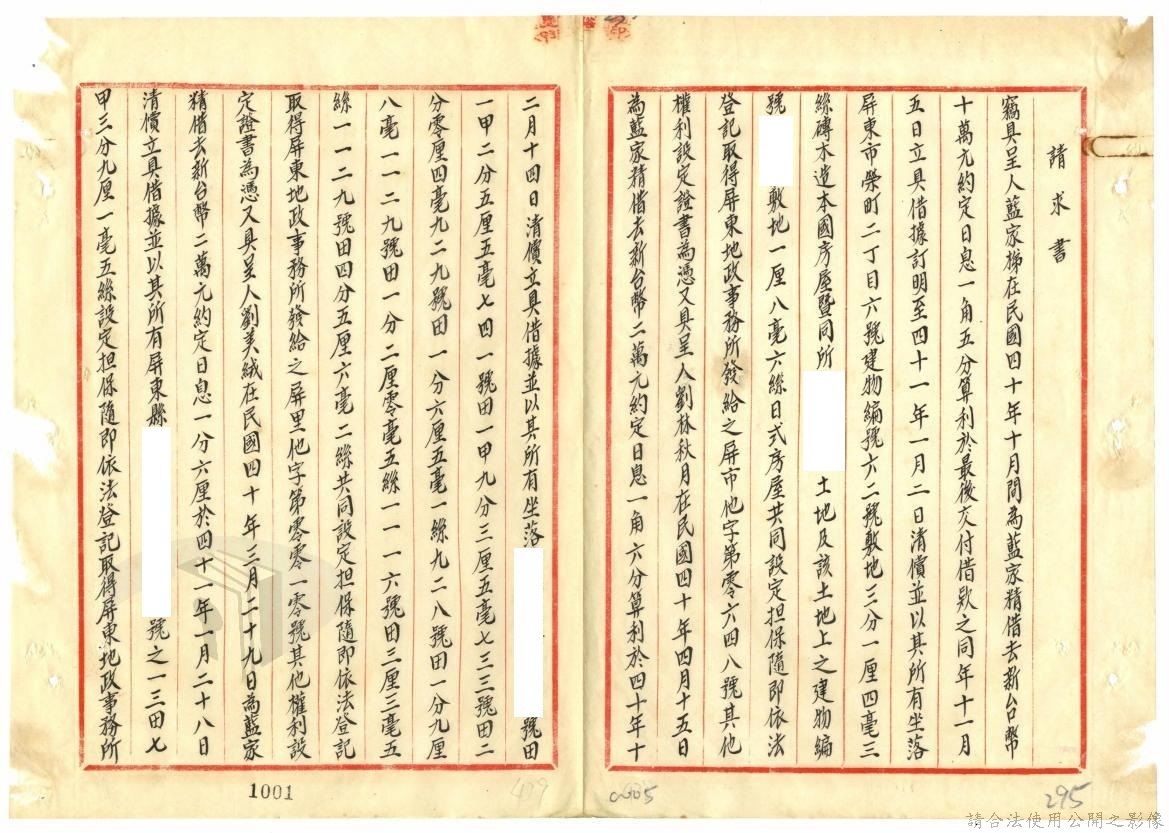 請求書
竊具呈人藍家梯在民國四十年十月間為藍家精借去新台幣
十萬元約定日息一角五分算利於最後交付借款之同年十一月
五日立具借據訂明至四十一年一月二日清償並以其所有坐落
屏東市榮町二丁目六號建物編號六二號敷地三分一厘四毫三
絲磚木造本國房屋暨同所 土地及該土地上之建物編
號 敷地一厘八毫六絲日式房屋共同設定担保隨即依法
登記取得屏東地政事務所發給之屏市他字第零六四八號其他
權利設定證書為憑又具呈人劉林秋月在民國四十年四月十五日
為藍家精借去新台幣二萬元約定日息一角六分算利於四十年十
二月十四日清償立具借據並以其所有坐落 號田
一甲二分五厘五毫七四一號田一甲九分三厘五毫七三三號田二
分零厘四毫九二九號田一分六厘五毫一絲九二八號田一分九厘
八毫一一二九號田一分二厘零毫五絲一一一六號田三厘三毫五
絲一一二九號田四分五厘六毫二絲共同設定担保隨即依法登記
取得屏東地政事務所發給之屏里他字第零零一零號其他權利設
定證書為憑又具呈人劉美絨在民國四十年三月二十九日為藍家
精借去新台幣二萬元約定日息一分六厘於四十一年一月二十八日
清償立具借據並以其所有屏東縣 號之一三田七
甲三分九厘一毫五絲設定担保隨即依法登記取得屏東地政事務所
1001
409
295
請合法使用公開之影像